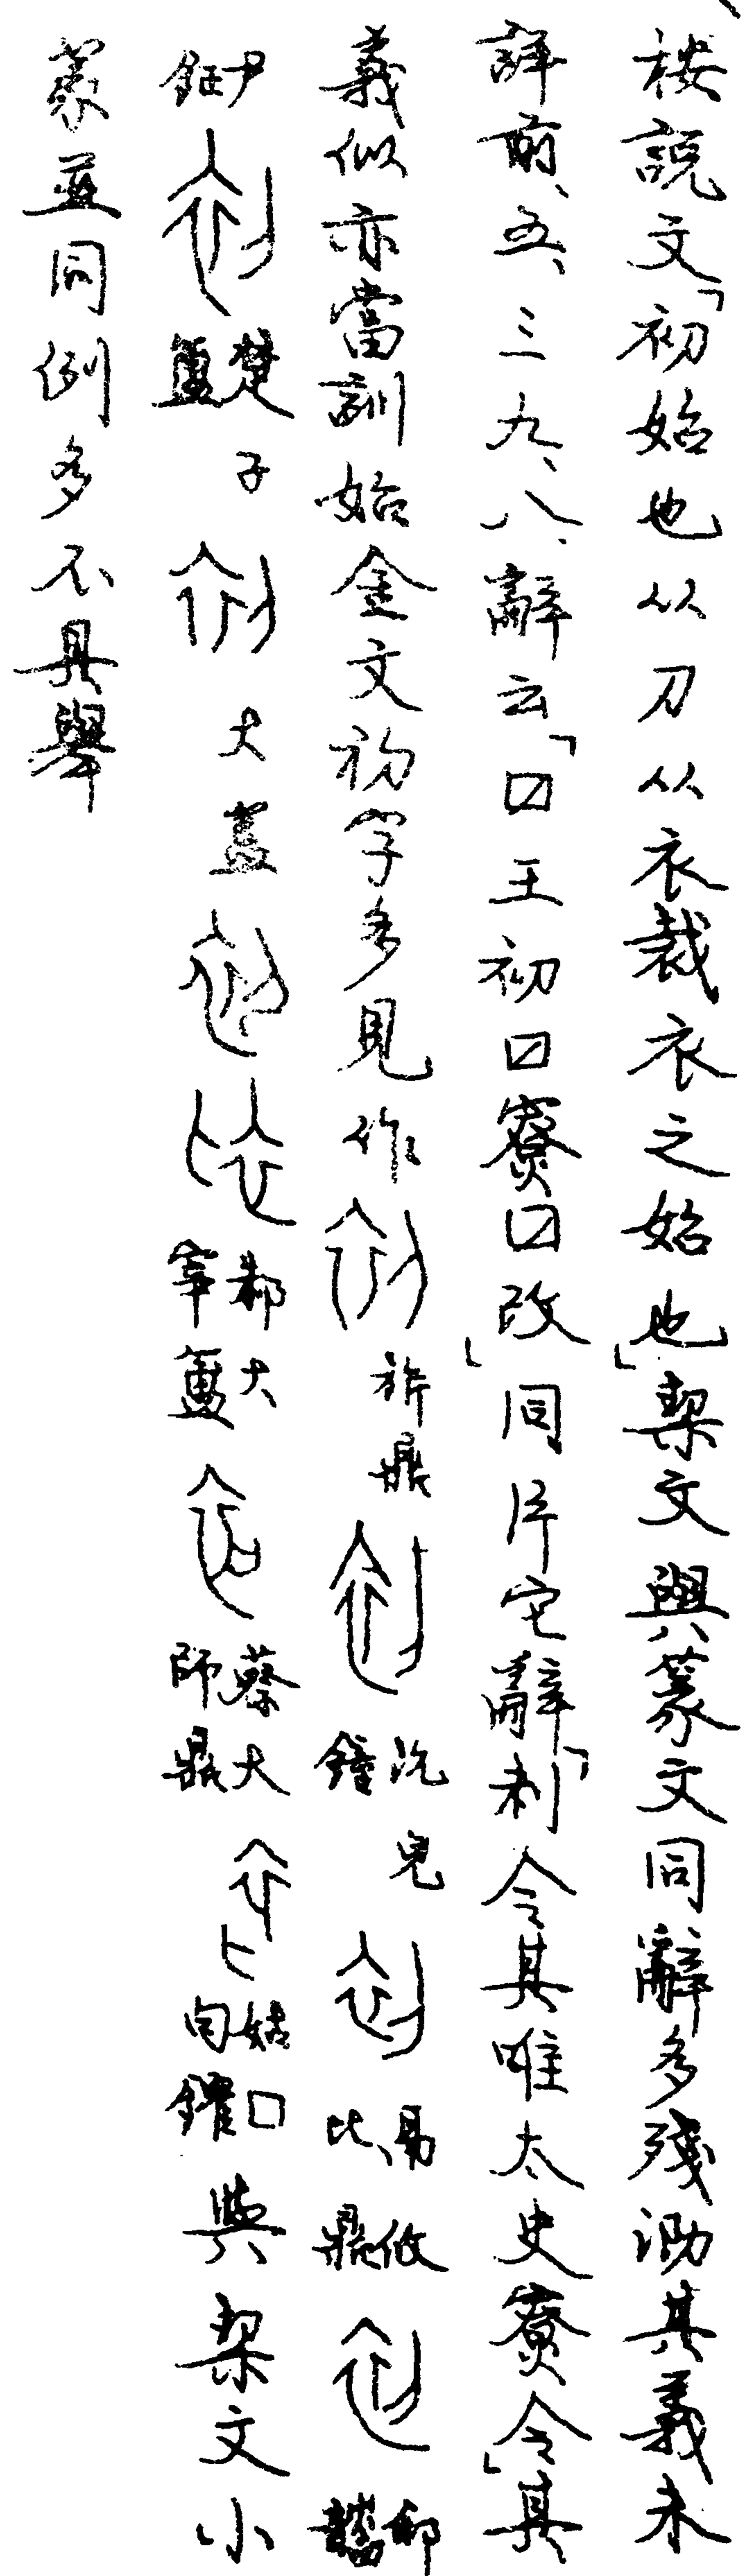 按說文「初始也从刀从衣裁衣之始也」栔文與篆文同辭多殘泐其義未
詳前、五、三九、八、辭云「☑王初☑寮☑改」同片它辭「剌令其唯太史寮令」其
義似亦當訓始金文初字多見作 旂鼎 沇兒鐘 鬲攸比鼎 邾
尹鉦 楚子簠 大𣪘 都大宰簠 蔡大師鼎 姑口句鑃 與栔文小
篆並同例多不具舉